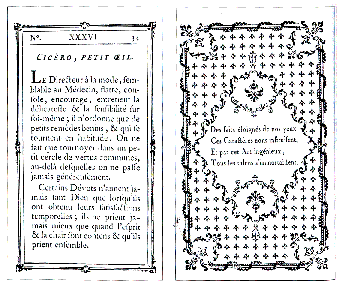 N°. XXXVI
CICÉRO, PETIT ŒIL.
LE Directeur à la mode, sem-
blable au Médecin, flatte, con-
sole, encourage, entretient la
délicatesse & la sensibilité sur
soi-même; il n'ordonne que de
petits remédes benins, & qui se
tournent en habitude. On ne
fait que tournoyer dans un pe-
tit cercle de vertus communes,
au-delà desquelles on ne passe
jamais généralement.
Certains Dévots n'aiment ja-
mais tant Dieu que lorsqu'ils
ont obtenu leurs satisfactions
temporelles; ils ne prient ja-
mais mieux que quand l'esprit
& la chair sont contens & qu'ils
prient ensemble.
Des faits éloignés de nos yeux
Ces Caractères nous instruisent,
Et par cet Art ingénieux,
Tous les talens s'immortalisent.